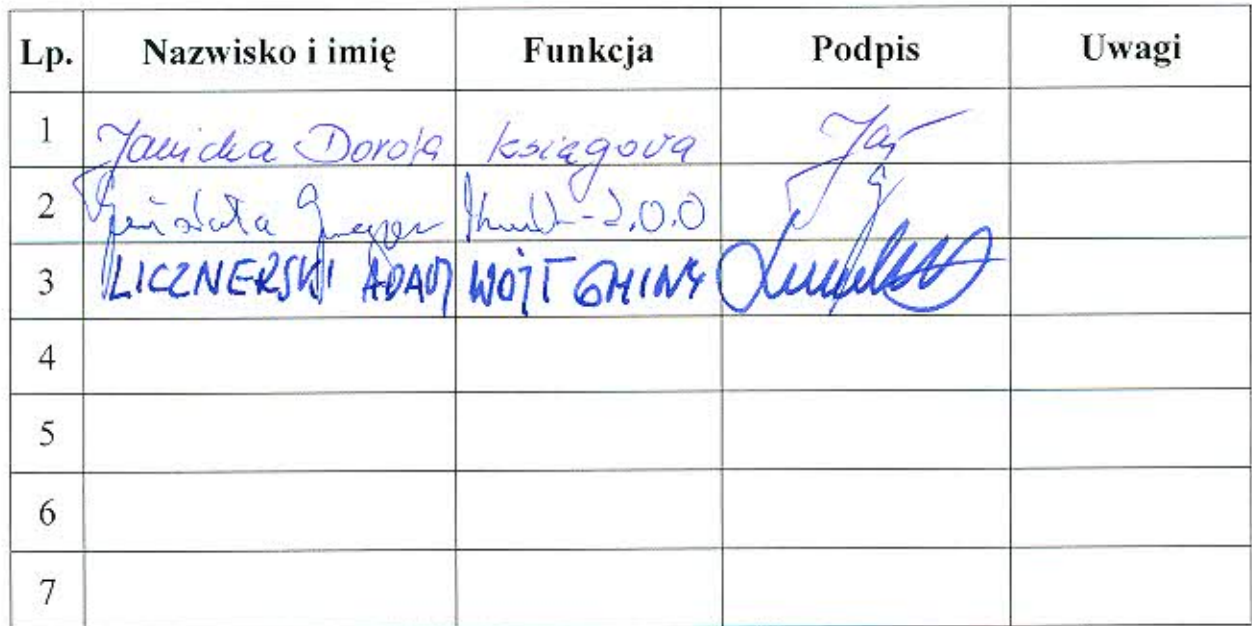 Lp. Nazwisko i imię Funkcja Podpis Uwagi
1 Janicka Dorota księgowa
2
3 LICZNERSKI ADAM WÓJT GMINY
4
5
6
7